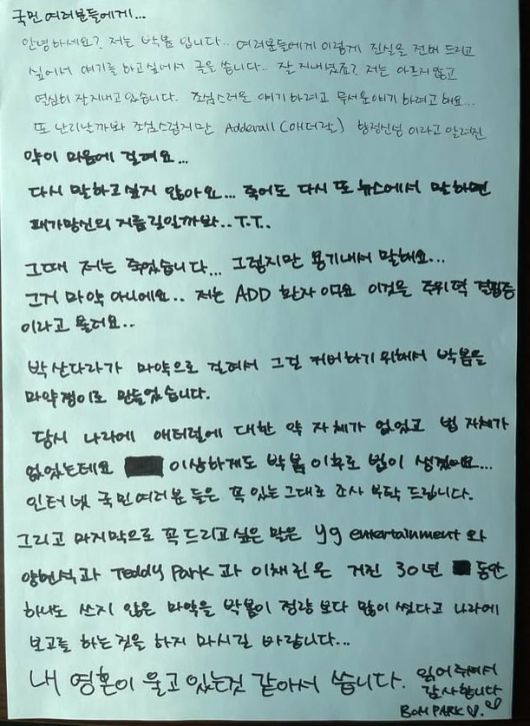 국민 여러분들에게...
안녕하세요? 저는 박봄 입니다.. 여러분들에게 이렇게 진실을 전해 드리고
싶어서 얘기를 하고싶어서 글을 씁니다.. 잘 지내셨죠? 저는 아프지 않고
열심히 잘지내고 있습니다. 조심스러운 얘기 하려고 무서운얘기 하려고 해요...
또 난리날까봐 조심스럽지만 Adderall (애더랄) 향정신성 이라고 알려진
약이 마음에 걸려요...
다시 말하고싶지 않아요... 죽어도 다시 또 뉴스에서 말하면
패가망신의 지름길일까봐..T.T..
그때 저는 죽었습니다... 그렇지만 용기내서 말해요...
그거 마약 아니에요.. 저는 ADD 환자 이고요 이것은 주위력 결핍증
이라고 불러요..
박산다라가 마약으로 걸려서 그걸 커버하기 위해서 박봄을
마약쟁이로 만들었습니다.
당시 나라에 애더럴에 대한 약 자체가 없었고 법 자체가
없었는데요 이상하게도 박봄 이후로 법이 생겼어요...
인터넷 국민여러분 들은 꼭 있는그대로 조사 부탁 드립니다.
그리고 마지막으로 꼭 드리고싶은 말은 yg entertainment 와
양현석과 Teddy Park 과 이채린은 거진 30년 동안
하나도 쓰지 않은 마약을 박봄이 정량 보다 많이 썼다고 나라에
보고를 하는것을 하지 마시길 바랍니다...
내 영혼이 울고 있는것 같아서 씁니다. 읽어주셔서
감사합니다
BOM PARK ♡.♡